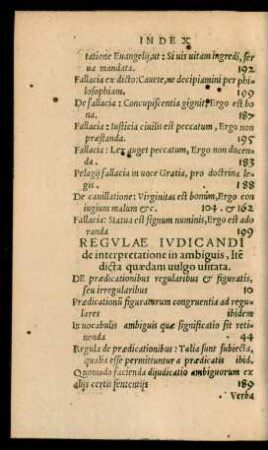 INDEX
tatione Euangelij, ut : Si uis uitam ingredi, ser
ua mandata. 192
Fallacia ex dicto: Cauete, ne decipiamini per phi
losophiam. 199
De fallacia : Concupiscentia gignit, Ergo est bo
na. 187
Fallacia : Iusticia ciuilis est peccatum, Ergo non
præstanda. 195
Fallacia : Lex auget peccatum, Ergo non docen
da. 183
Pelagij fallacia in uoce Gratia, pro doctrina le
gis. 188
De cauillatione : Virginitas est bonum, Ergo con
iugium malum &c. 104. & 162
Fallacia: Statua est signum numinis, Ergo est ado
randa 199
REGVLAE IVDICANDI
de interpretatione in ambiguis, Itē
dicta quædam uulgo usitata.
DE prædicationibus regularibus & figuratis,
seu irregularibus 10
Prædicationū figuratarum congruentia ad regu
lares ibidem
In uocabulis ambiguis quæ significatio sit reti
nenda 44
Regula de prædicationibus : Talia sunt subiecta,
qualia esse permittuntur a prædicatis ibid.
Quomodo facienda dijudicatio ambiguorum ex
alijs certis sententijs 189
Verba